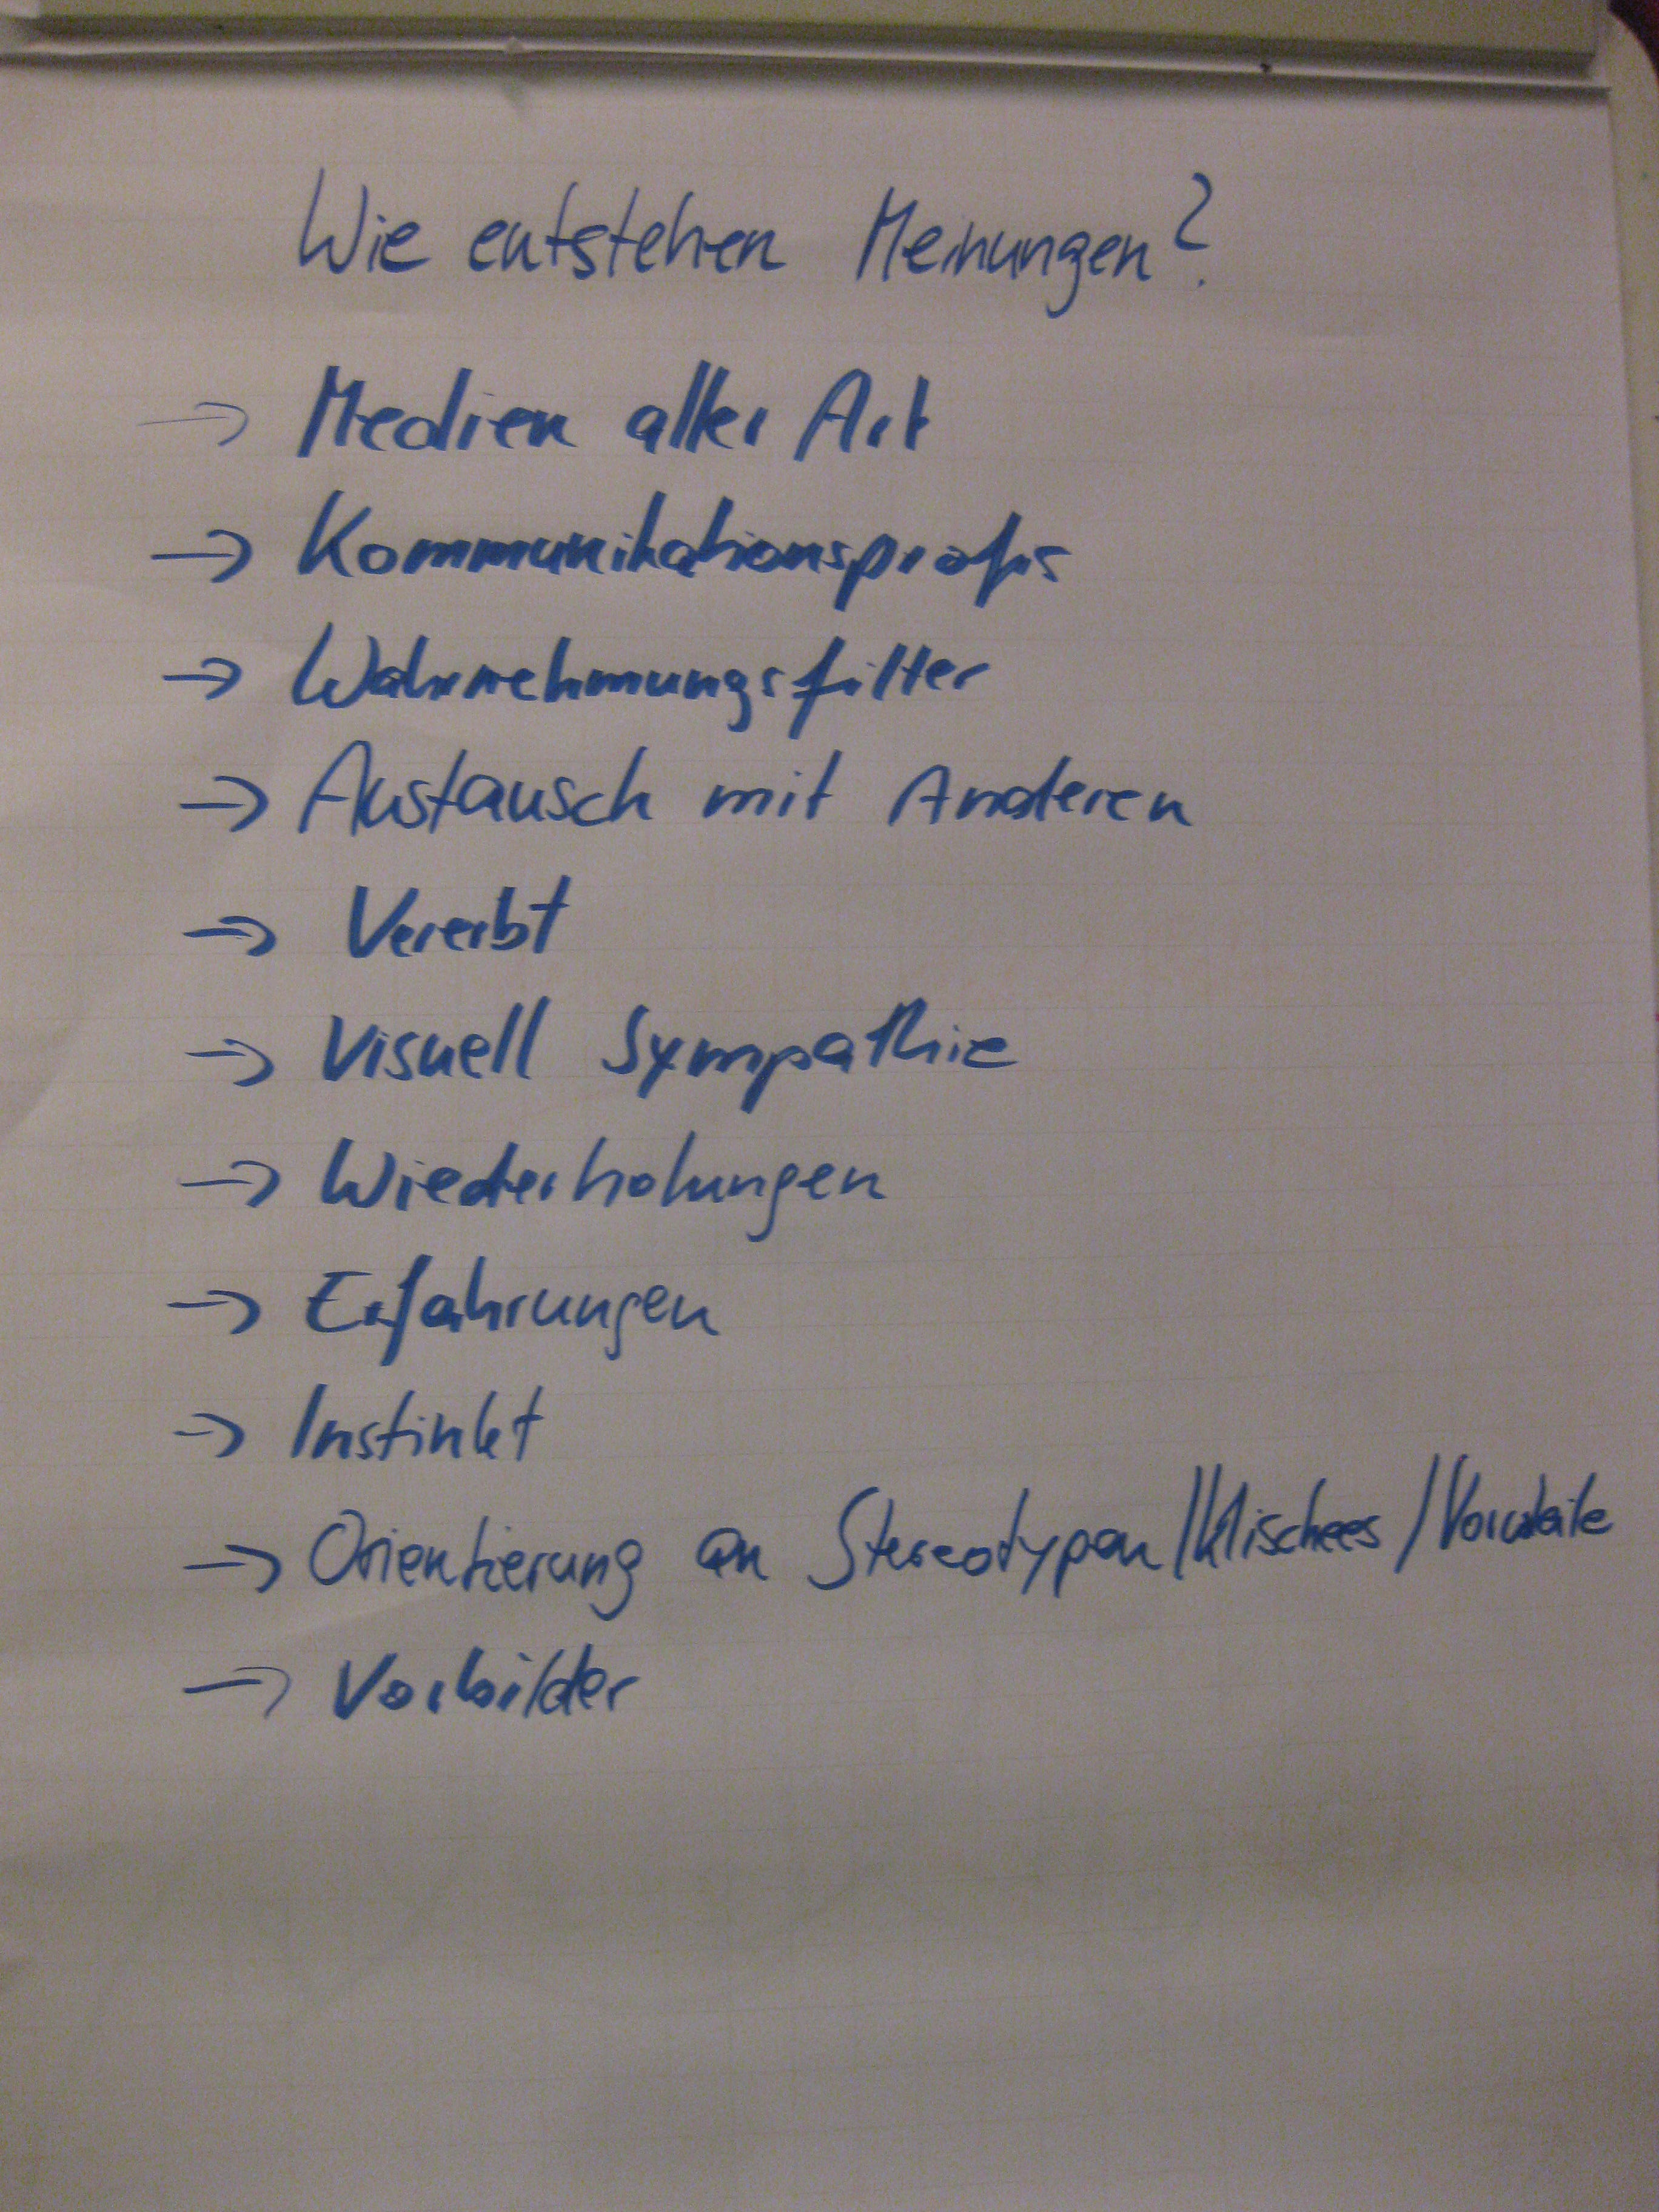 Wie entstehen Meinungen?
→ Medien aller Art
→ Kommunikationsprofis
→ Wahrnehmungsfilter
→ Austausch mit Anderen
→ Vererbt
→ Visuell Sympathie
→ Wiederholungen
→ Erfahrungen
→ Instinkt
→ Orientierung an Stereotypen/Klischees/Vorurteile
→ Vorbilder